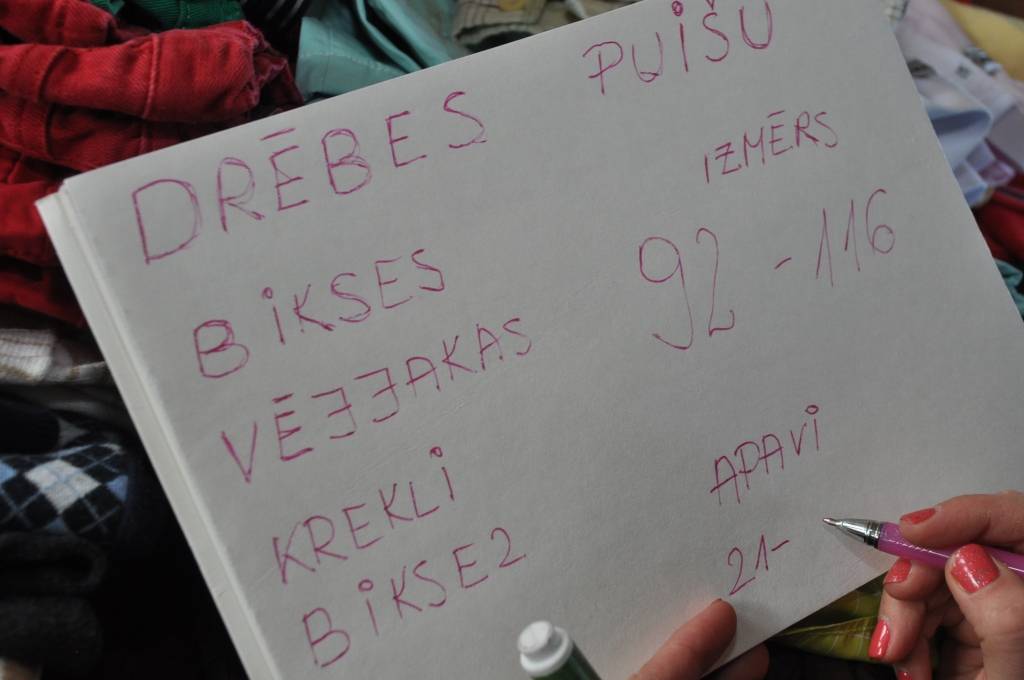 DRĒBES PUiŠU
BiKSES IZMĒRS
VĒJJAKAS 92 - 116
KREKLi APAVi
BiKSE2 21-